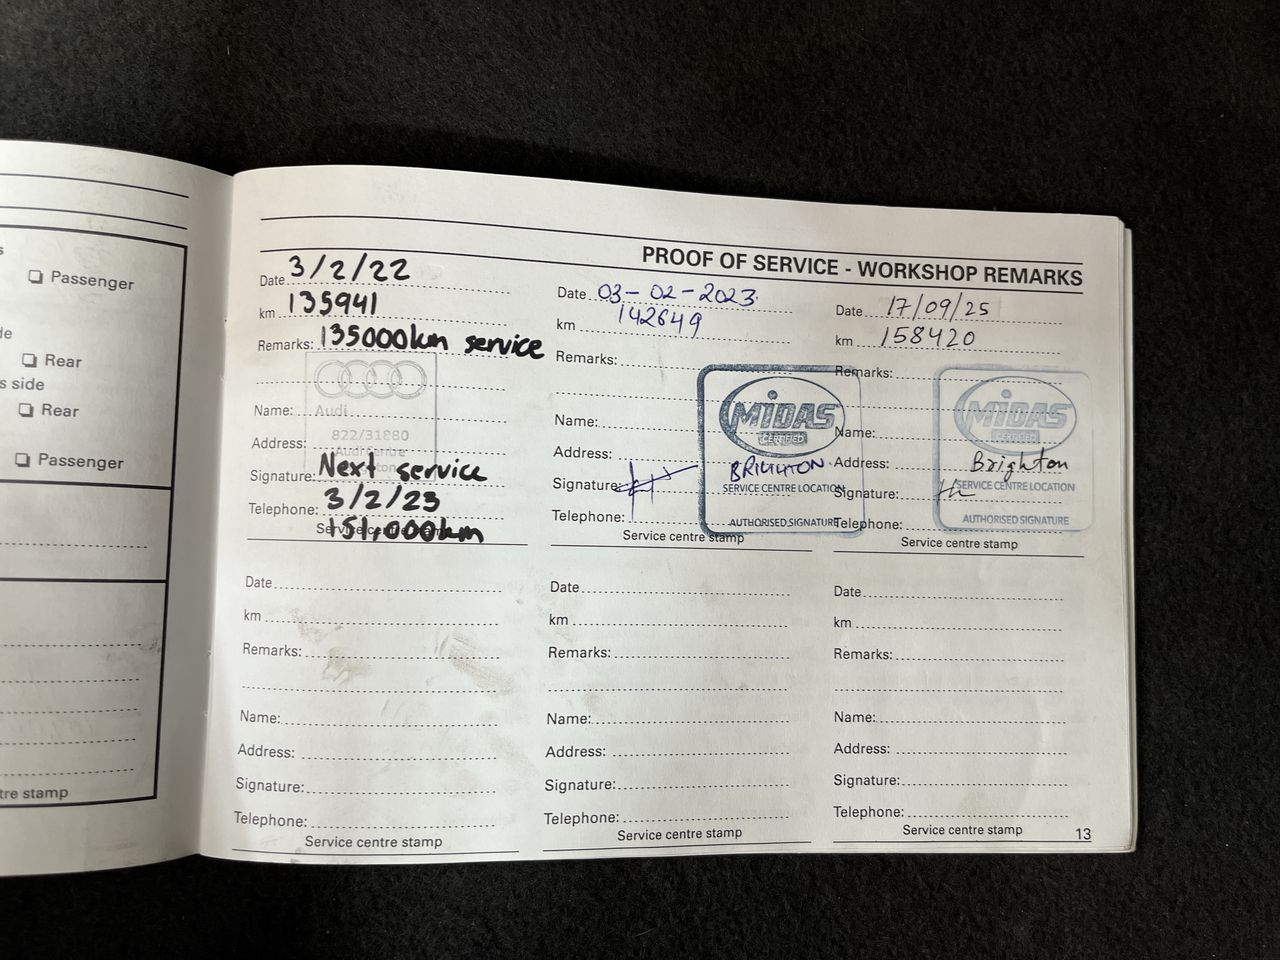 Passenger
Rear
s side
Rear
Passenger
PROOF OF SERVICE - WORKSHOP REMARKS
Date 3/2/22
km 135941
Remarks: 135000km service
Audi
822/31880
Name:
Address:
Signature: Next service
Telephone: 3/2/23
151,000km
Service centre stamp
Date 03-02-2023.
km 142649
Remarks:
MIDAS
CERTIFIED
Name:
Address:
BRIGHTON
SERVICE CENTRE LOCATION
Signature:
AUTHORISED SIGNATURE
Telephone:
Service centre stamp
Date 17/09/25
km 158420
Remarks:
MIDAS
CERTIFIED
Name:
Address: Brighton
SERVICE CENTRE LOCATION
Signature:
AUTHORISED SIGNATURE
Telephone:
Service centre stamp
Date
km
Remarks:
Name:
Address:
Signature:
Telephone:
Service centre stamp
Date
km
Remarks:
Name:
Address:
Signature:
Telephone:
Service centre stamp
Date
km
Remarks:
Name:
Address:
Signature:
Telephone:
Service centre stamp
13
tre stamp